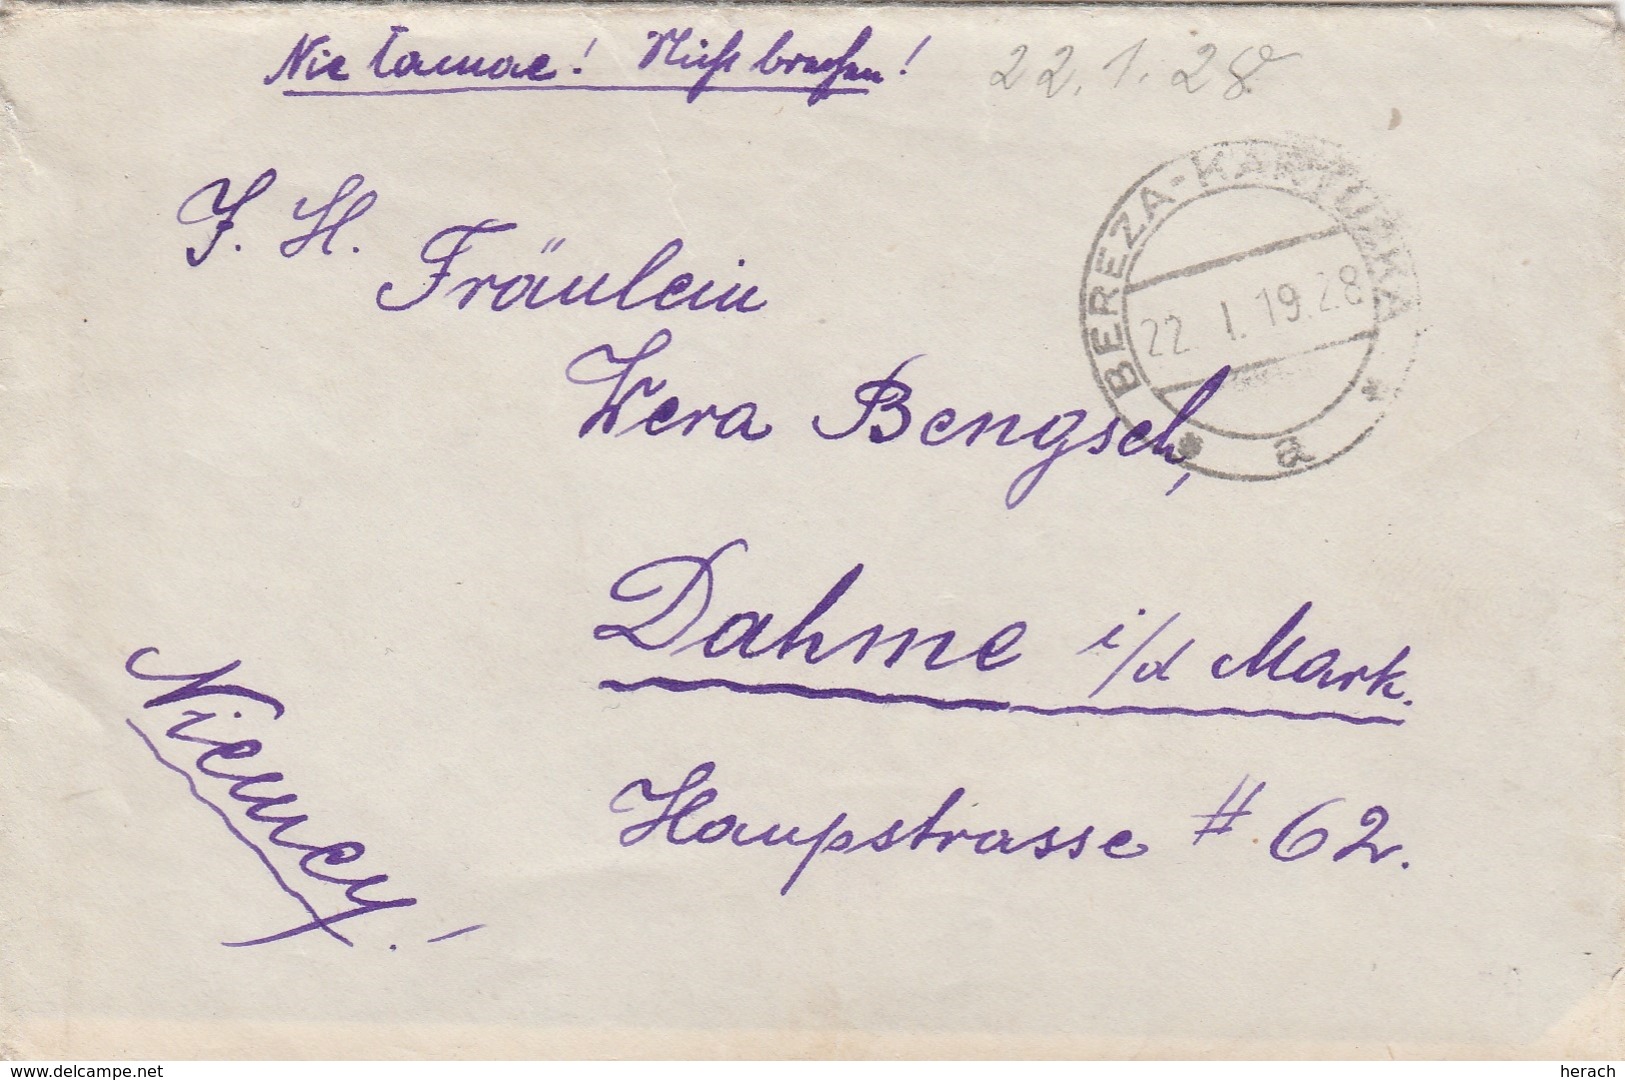 Nie łamać! Nicht brechen!
22.1.28
BEREZA-KARTUZKA
22. I. 19.28
* a *
J. H.
Fräulein
Wera Bengsch,
Dahme i/d Mark.
Hauptstrasse # 62.
Niemcy!
www.delcampe.net
herach